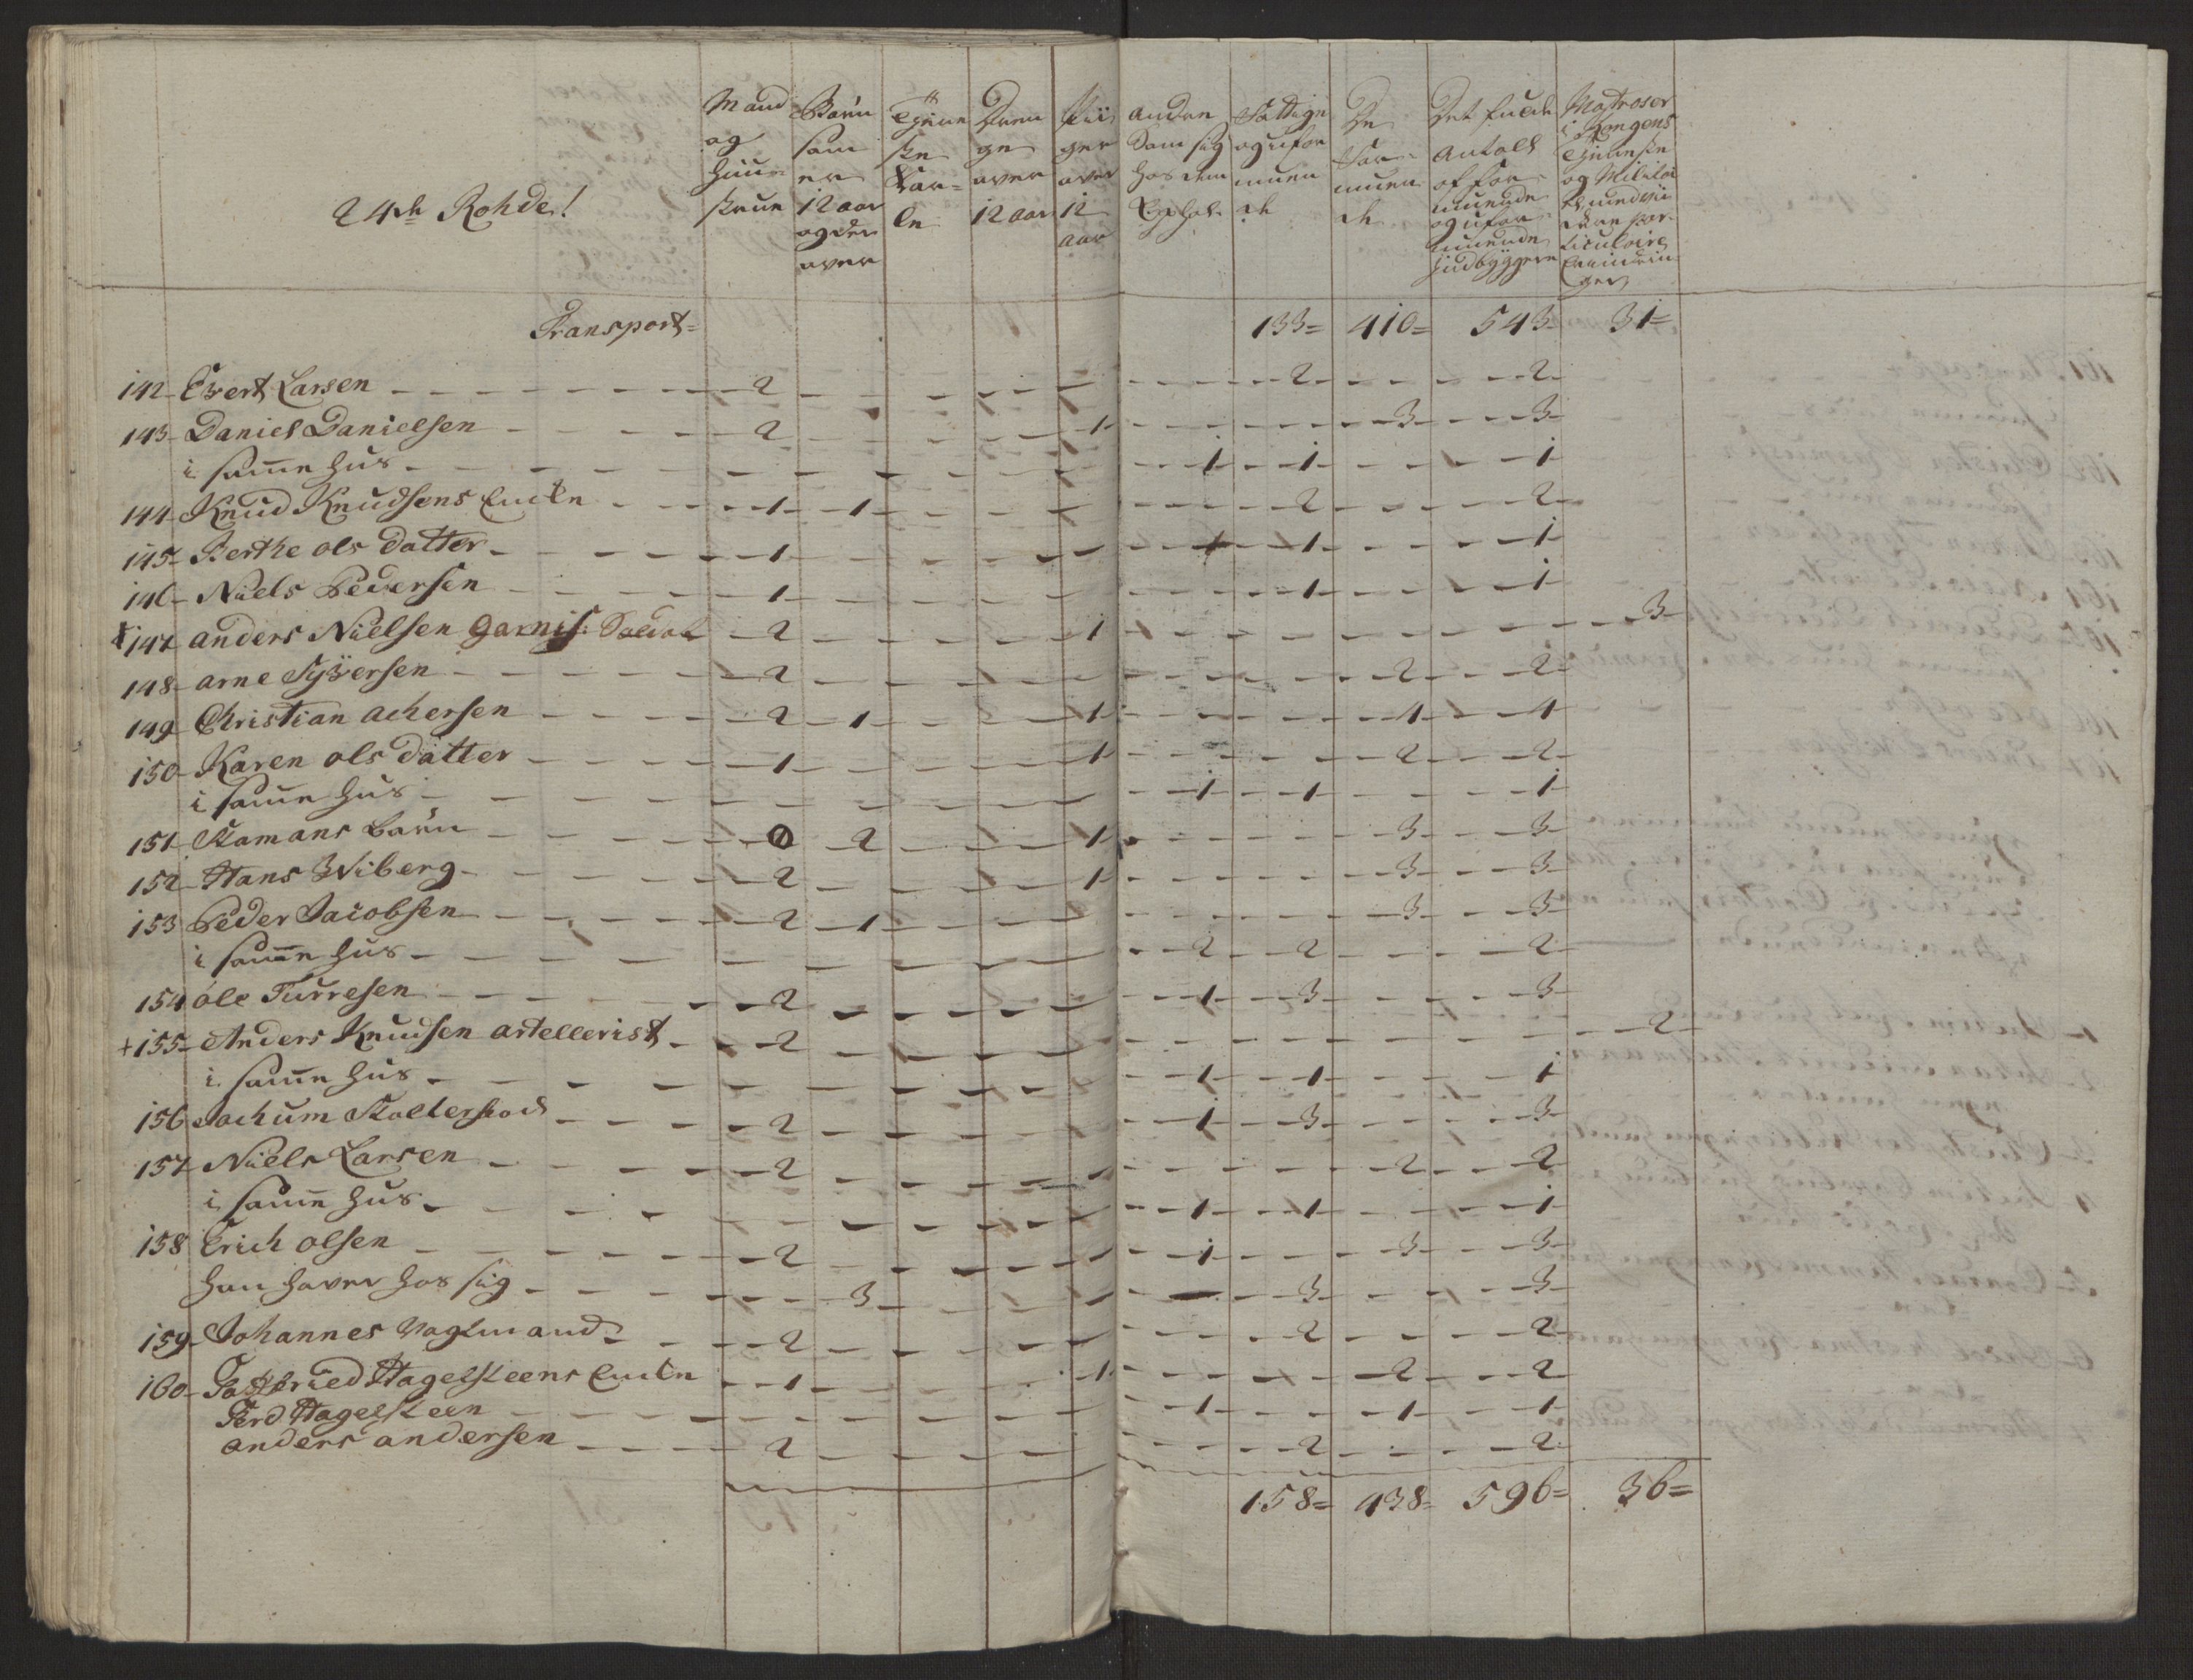 24de Rohde!
Mand og Huustrue
Børn som er 12 aar og der over
Tjeneste Karle
Drenge over 12 aar
Piiger over 12 aar
andre Som sig hos dem Ophol:
Fattige og uformuende
De Formuende
Det fulde Antall af formuende og uformuende Indbyggere
Matroser i Kongens Tjeneste og Militai
Transport= 133= 410= 543= 31=
142- Evert Larsen 2 2 2
143- Daniel Danielsen 2 1 3 3
i samme Hus 1 1 1
144- Knud Knudsens Encke 1 1 2 2
145- Berthe ols datter 1 1 1 1
146- Niels Pedersen 1 1 1
+147 anders Nielsen Garnis: Soldat 2 1 3
148- arne Syversen 2 2 2
149- Christian achersen 2 1 1 4 4
150- Karen ols datter 1 1 2 2
i samme Hus 1 1 1
151- Stamans Børn 0 2 1 3 3
152- Hans Wiberg 2 1 3 3
153 Peder Jacobsen 2 1 3 3
i samme Hus 2 2 2
154 ole Turresen 2 1 3 3
+155- Anders Knudsen artellerist 2 2
i samme Hus 1 1 1
156 Jochum Stoltershod 2 1 3 3
157 Niels Larsen 2 2 2
i samme Hus 1 1 1
158 Erich olsen 2 1 3 3
Han haver hos sig 3 3 3
159- Johannes Vagtmand 2 2 2
160- Gottfried Hagelsteens Encke 1 1 2 2
Ferd Hagelsteen 1 1 1
anders andersen 2 2 2
158= 438= 596= 36=